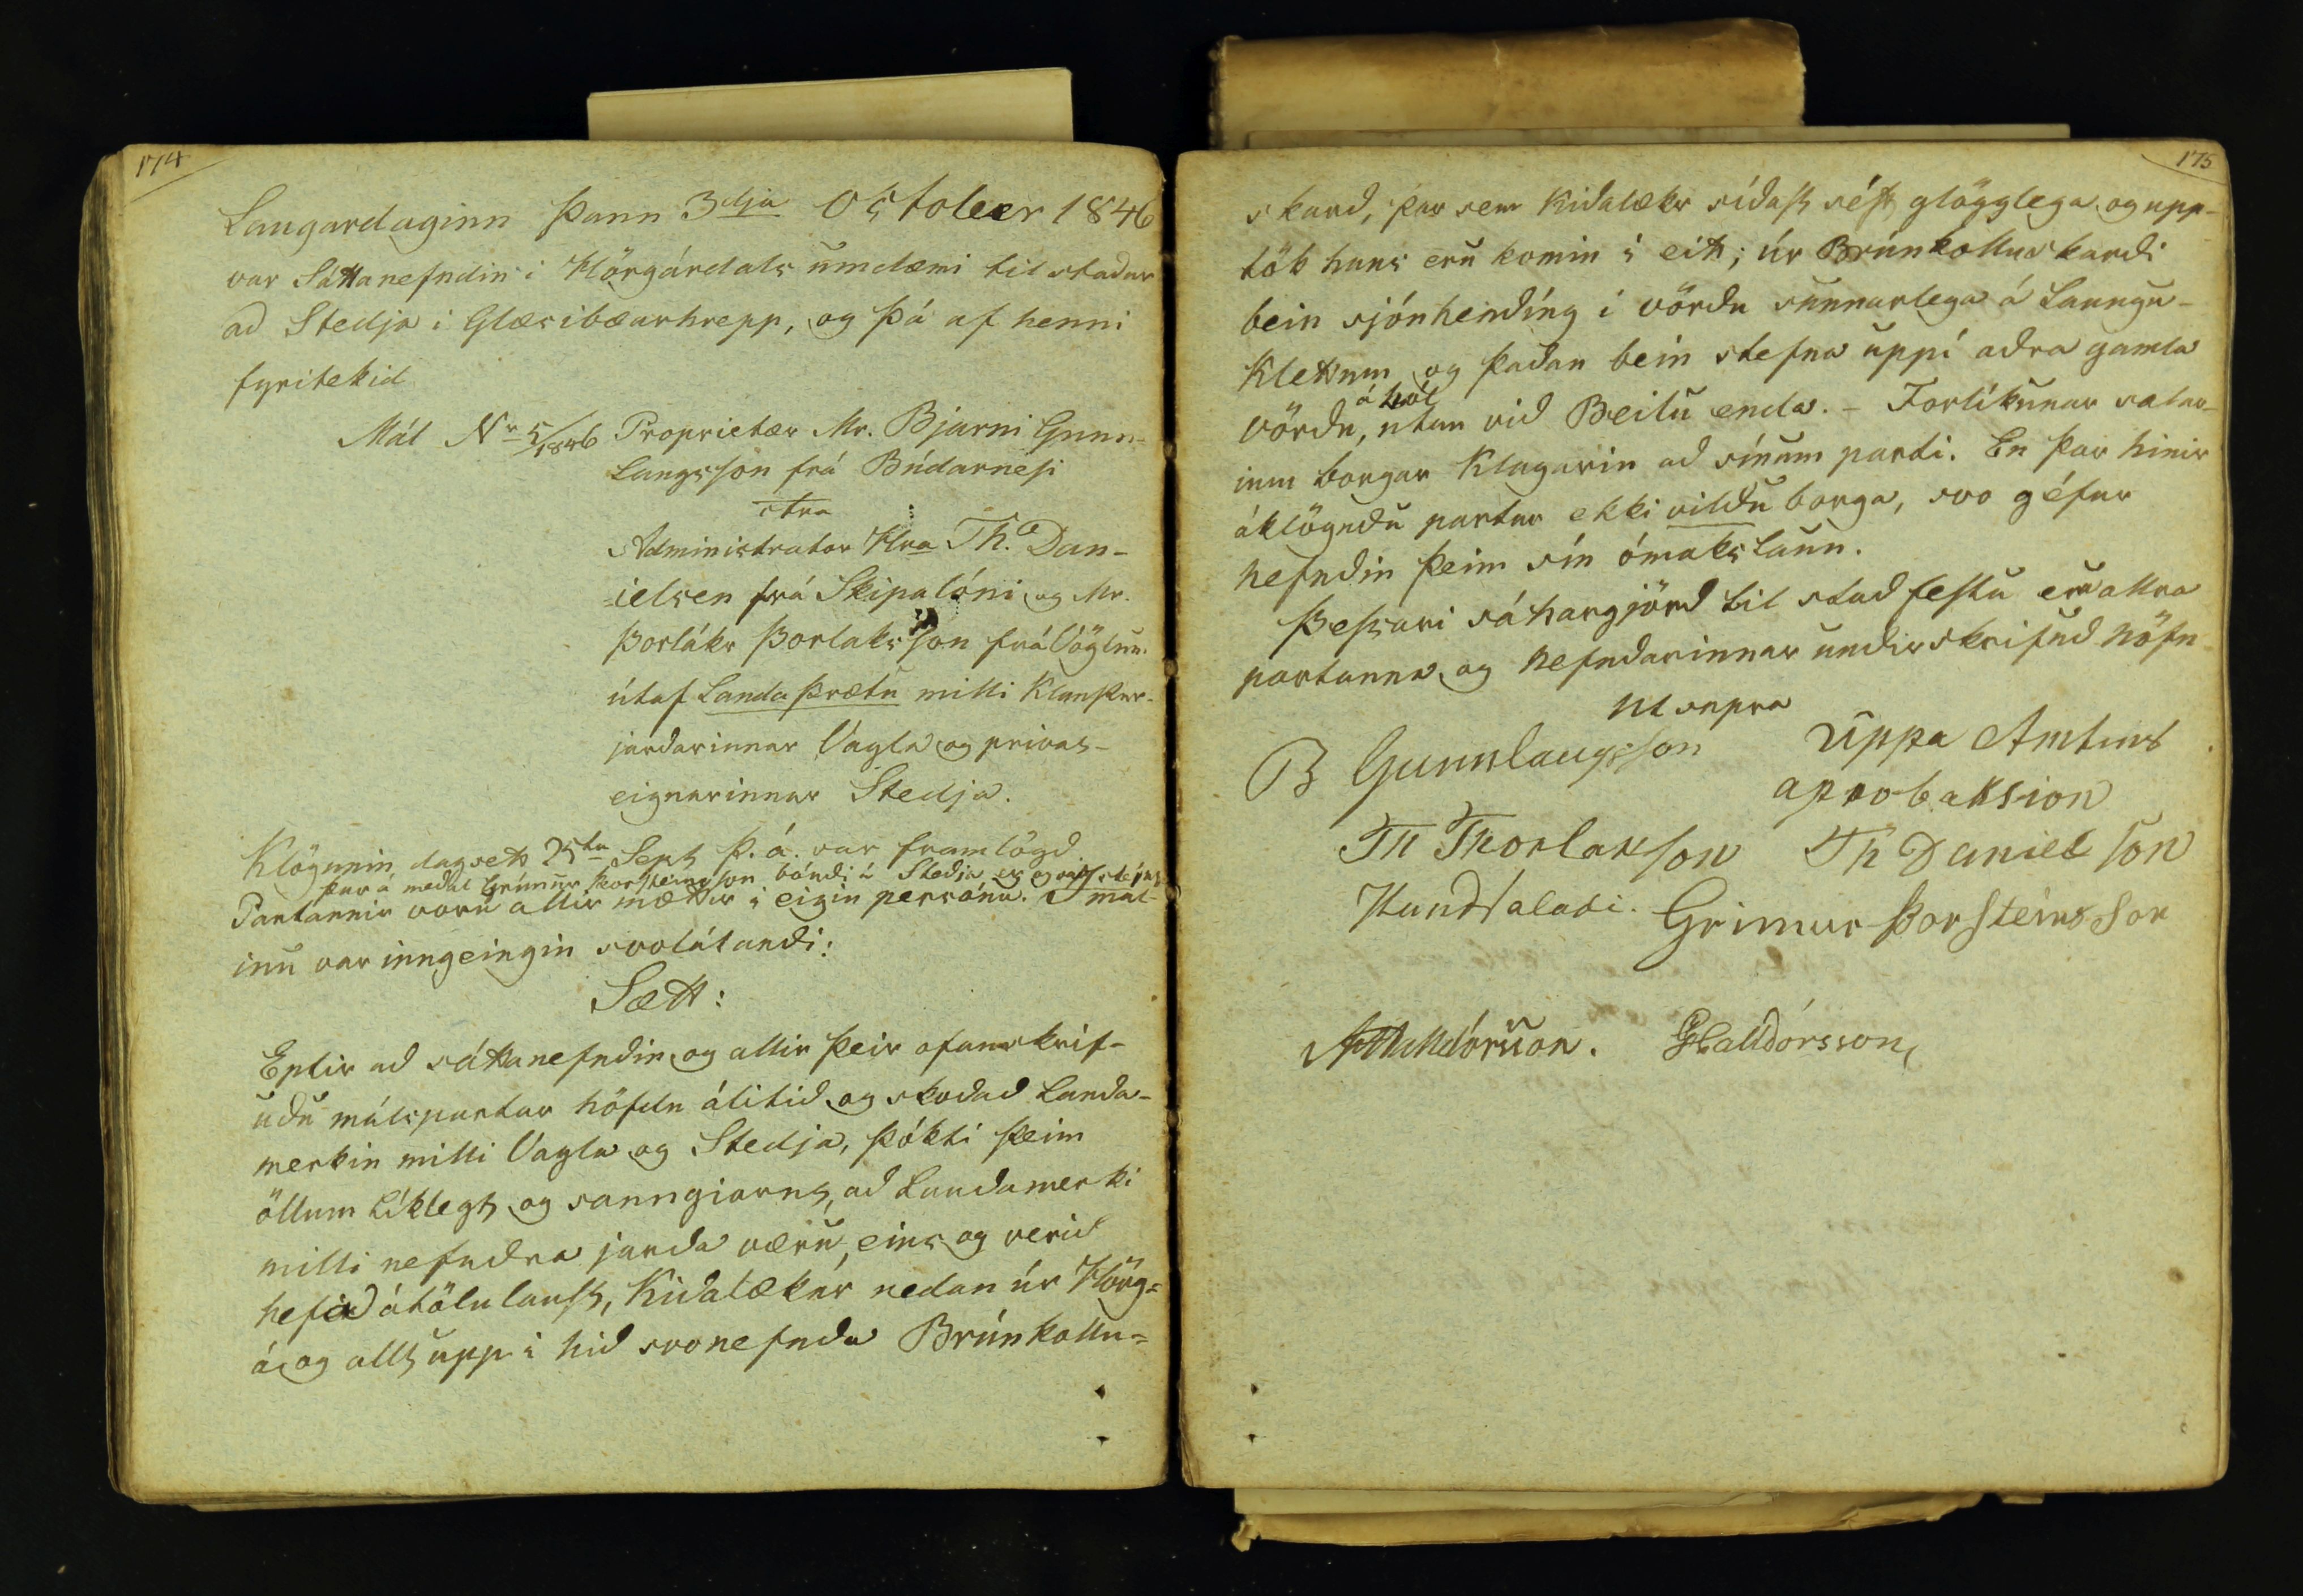 174
Laugardaginn þann 3dja October 1846
var Sáttanefndin í Hörgárdals umdæmi til stadar
ad Stedja i Glæsibæarhrepp, og þá af henni
fyritekid
Mál Nr 5/1846 Proprietær Mr. Bjarni Gunn-
laugsson frá Búdarnesi
ctra
Administrator Hra Th. Dan-
ielsen frá Skipalóni og Mr.
Þorlákr Þorlaksson frá Vöglum.
útaf Landaþrætu milli Klausturjardarinnar
Vagla og privat-
eignarinnar Stedja.
Klögunin dagsett 25ta Sept þ.á. var framlögd
þar á medal Grímur Þorsteinsson bóndi á Stedja
Partarnir voru allir mættir í eigin persónu. I mál-
inu var inngeingin svolátandi:
Sætt:
Eptir ad sáttanefndin og allir þeir ofanskrif-
udu málspartar höfdu álitid og skodad Landa-
merkin milli Vagla og Stedja, þókti þeim
öllum líklegt og sanngiarnt, ad Landamerki
milli nefndra jarda væru, eins og verid
hefid átölulaust, Kidalækur nedan úr Hörg=
á og allt upp i hid svonefnda Brúnkollu=
175
skard, þar sem Kidalækr sídast sést glögglega og upp-
tök hans eru komin í eitt; úr Brúnkolluskardi
bein sjónhendíng í vördu sunnarlega á Laungu-
klettum og þadan bein stefna uppí adra gamla
á hól
vördu, utan vid Beitu enda. - Forlíkunar salar-
inn borgar Klagarin ad sínum parti. En þar hinir
áklögudu partar ekki vildu borga, svo géfur
nefndin þeim sín ómakslaun.
Þessari sáttargjörd til stadfestu eru allra
partanna og Nefndarinnar undirskrifud nöfn
ut supra
B Gunnlaugsson
uppa Amtins
aprobaksion
Th Thorlakson Th Danielson
Handsaladi. Grimur Þorsteinsson
Halldórsson. Halldórsson,